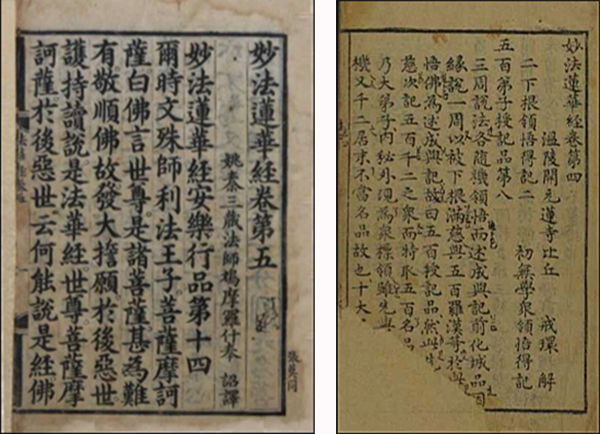 妙法蓮華經卷第五
姚秦三藏法師鳩摩羅什奉 詔譯
妙法蓮華經安樂行品第十四
爾時文殊師利法王子菩薩摩訶
薩白佛言世尊是諸菩薩甚為難
有敬順佛故發大誓願於後惡世
護持讀說是法華經世尊菩薩摩
訶薩於後惡世云何能說是經佛
妙法蓮華經卷第四
溫陵開元蓮寺比丘 戒環 解
二下根領悟得記二 初無學眾領悟得記
五百弟子授記品第八
三周說法各隨機領悟而述成與記前化城品因
緣說一周以被下根滿慈與五百羅漢等於此
悟佛為述成與記故曰五百授記品然
慈次記五百千二之眾而特取五百名品
乃大弟子內秘外現為眾標領先與
機又千二居末不當名品故也十大